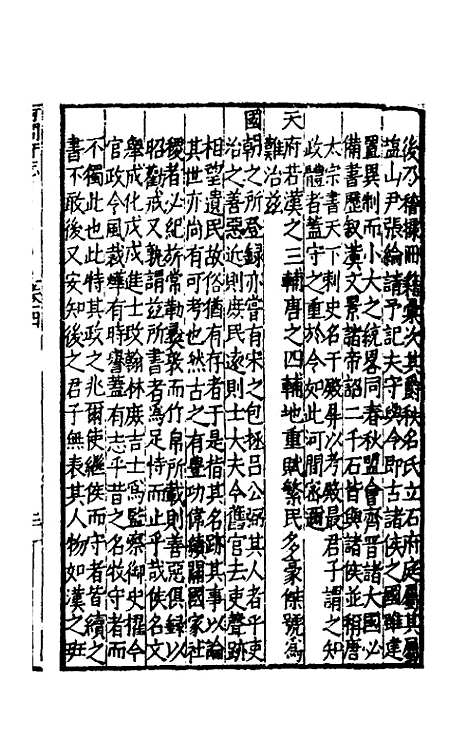 後乃稽擽冊籍彙次其爵秩名氏立石府庭屬其屬
塩山尹張綸請予記夫守與令即古諸侯之國雖建
置異制而小大之統畧同春秋盟會齊晉諸大國必
備書歷叙漢文景諸帝詔二千石皆與諸侯並稱唐
太宗書天下刺史名于殿屏以考殿最君子謂之知
政體者蓋守之重於今如此河間家邇
天府若漢之三輔唐之四輔地重賦繁民多豪傑號為
難治茲
國朝之所登録亦嘗有宋之包拯呂公弼其人者乎吏
治之善惡近則庶民遠則士大夫今舊官去吏聲跡
相望遺民故俗猶有存者于是指其名跡其事以論
其世亦尚有可考也然古之有豊功偉績關國家社
稷者必紀於常勒褧裘而竹帛所載則善惡俱録以
昭勸戒又孰謂茲所書者為足恃而止乎哉侯名文
舉成化戊戌進士改翰林庶吉士為監察御史擢今
官政令風裁曄有時譽蓋有志乎昔之名牧守者而
不獨此也此特其政之兆爾使繼侯而守者皆續之
書不敢後又安知後之君子無表其人物如漢之班